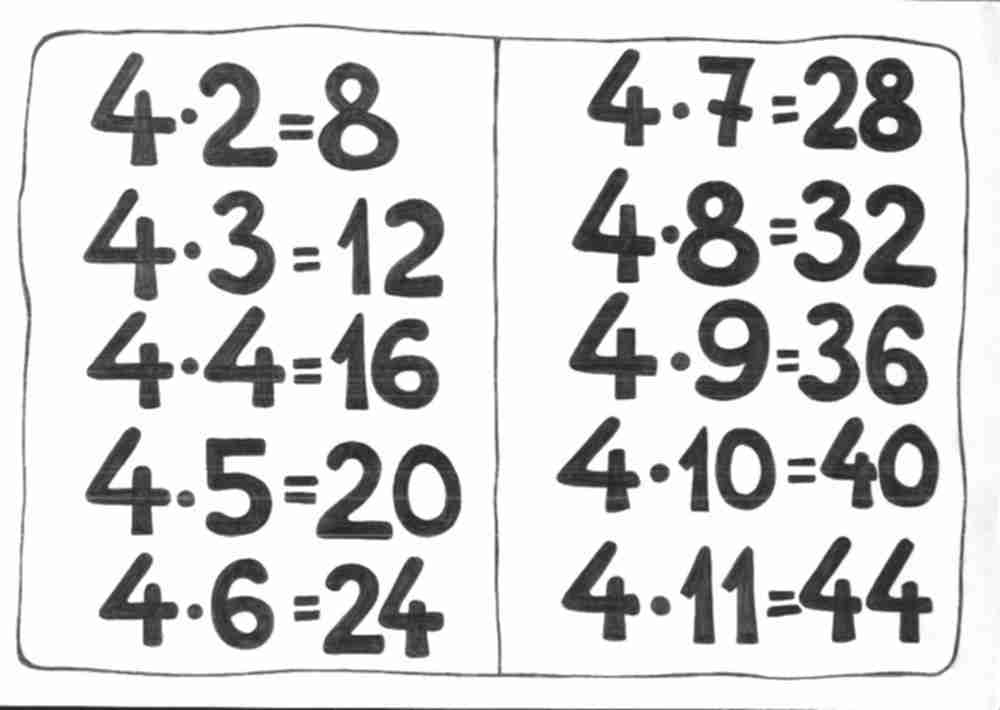 4·2=8
4·3=12
4·4=16
4·5=20
4·6=24
4·7=28
4·8=32
4·9=36
4·10=40
4·11=44